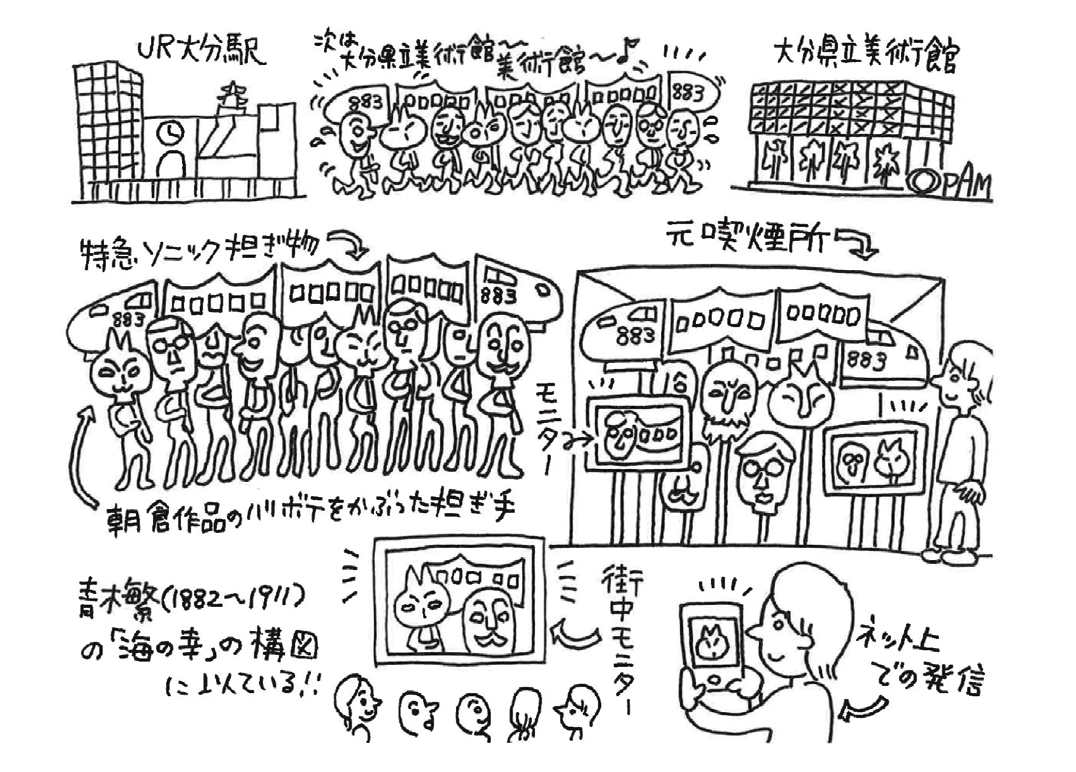 JR大分駅
次は
大分県立美術館〜
美術館〜♪
883
883
大分県立美術館
OPAM
特急ソニック担ぎ物
883
883
朝倉作品のハリボテをかぶった担ぎ手
元喫煙所
883
883
モニター
青木繁(1882〜1911)
の「海の幸」の構図
に似ている!!
街中モニター
ネット上
での発信